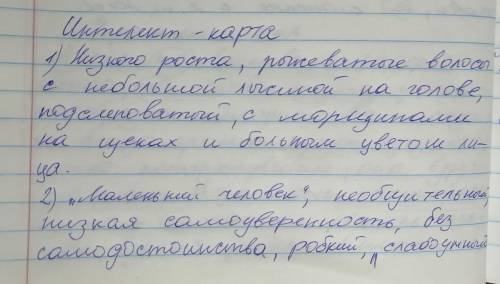 Интелект - карта
1) Низкого роста, рыжеватые волосы
с небольшой лысиной на голове,
подслеповатый, с морщинами
на щеках и больным цветом ли-
ца.
2) „Маленький человек", необщительный,
низкая самоуверенность, без
самодостоинства, робкий, „слабоумный